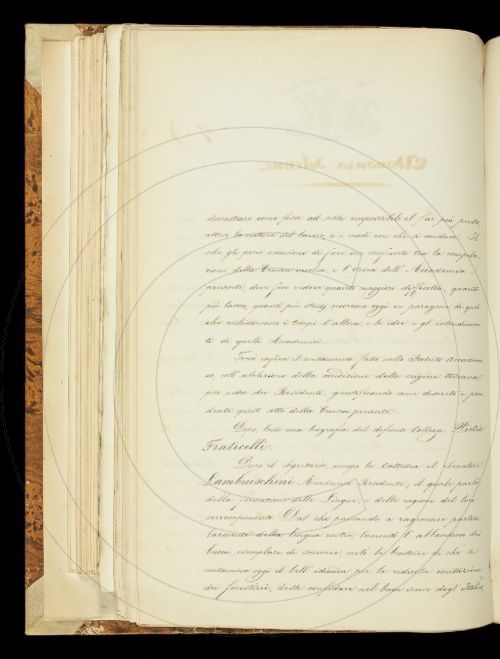 dimostrare come fosse ad essa impossibile il far più presto
attesa la natura del lavoro, e i modi con che si conduce. Il
che gli porse occasione di fare un confronto tra la compila-
zione della Crusca vecchia, e l'opera dell'Accademia
presente, dove fece vedere quanto maggiore difficoltà, quanto
più lavoro, quanti più studj occorrono oggi in paragone di quel
che richiedevano i tempi d'allora, e le idee e gl'intendimen-
ti di quelli Accademici.
Toccò infine il mutamento fatto nello Statuto Accademi-
co, coll'abolizione della condizione della origine toscana
per essere dei Residenti, giustificando come discreto e pru-
dente quest'atto della Crusca presente.
Dopo, lesse una biografia del defunto Collega Pietro
Fraticelli.
Dopo il Segretario, occupò la cattedra il Senatore
Lambruschini Accademico Residente, il quale parlò
della formazione delle Lingue, e delle cagioni del loro
corrompimento. Dal che passando a ragionare partico-
larmente della lingua nostra, lamentò l'abbandono dei
buoni esemplari di scrivere, notò le brutture che
contamina oggi il bell'idioma per la ridicola imitazione
dei forestieri, disse confidare nel buon senso degl'Italia-